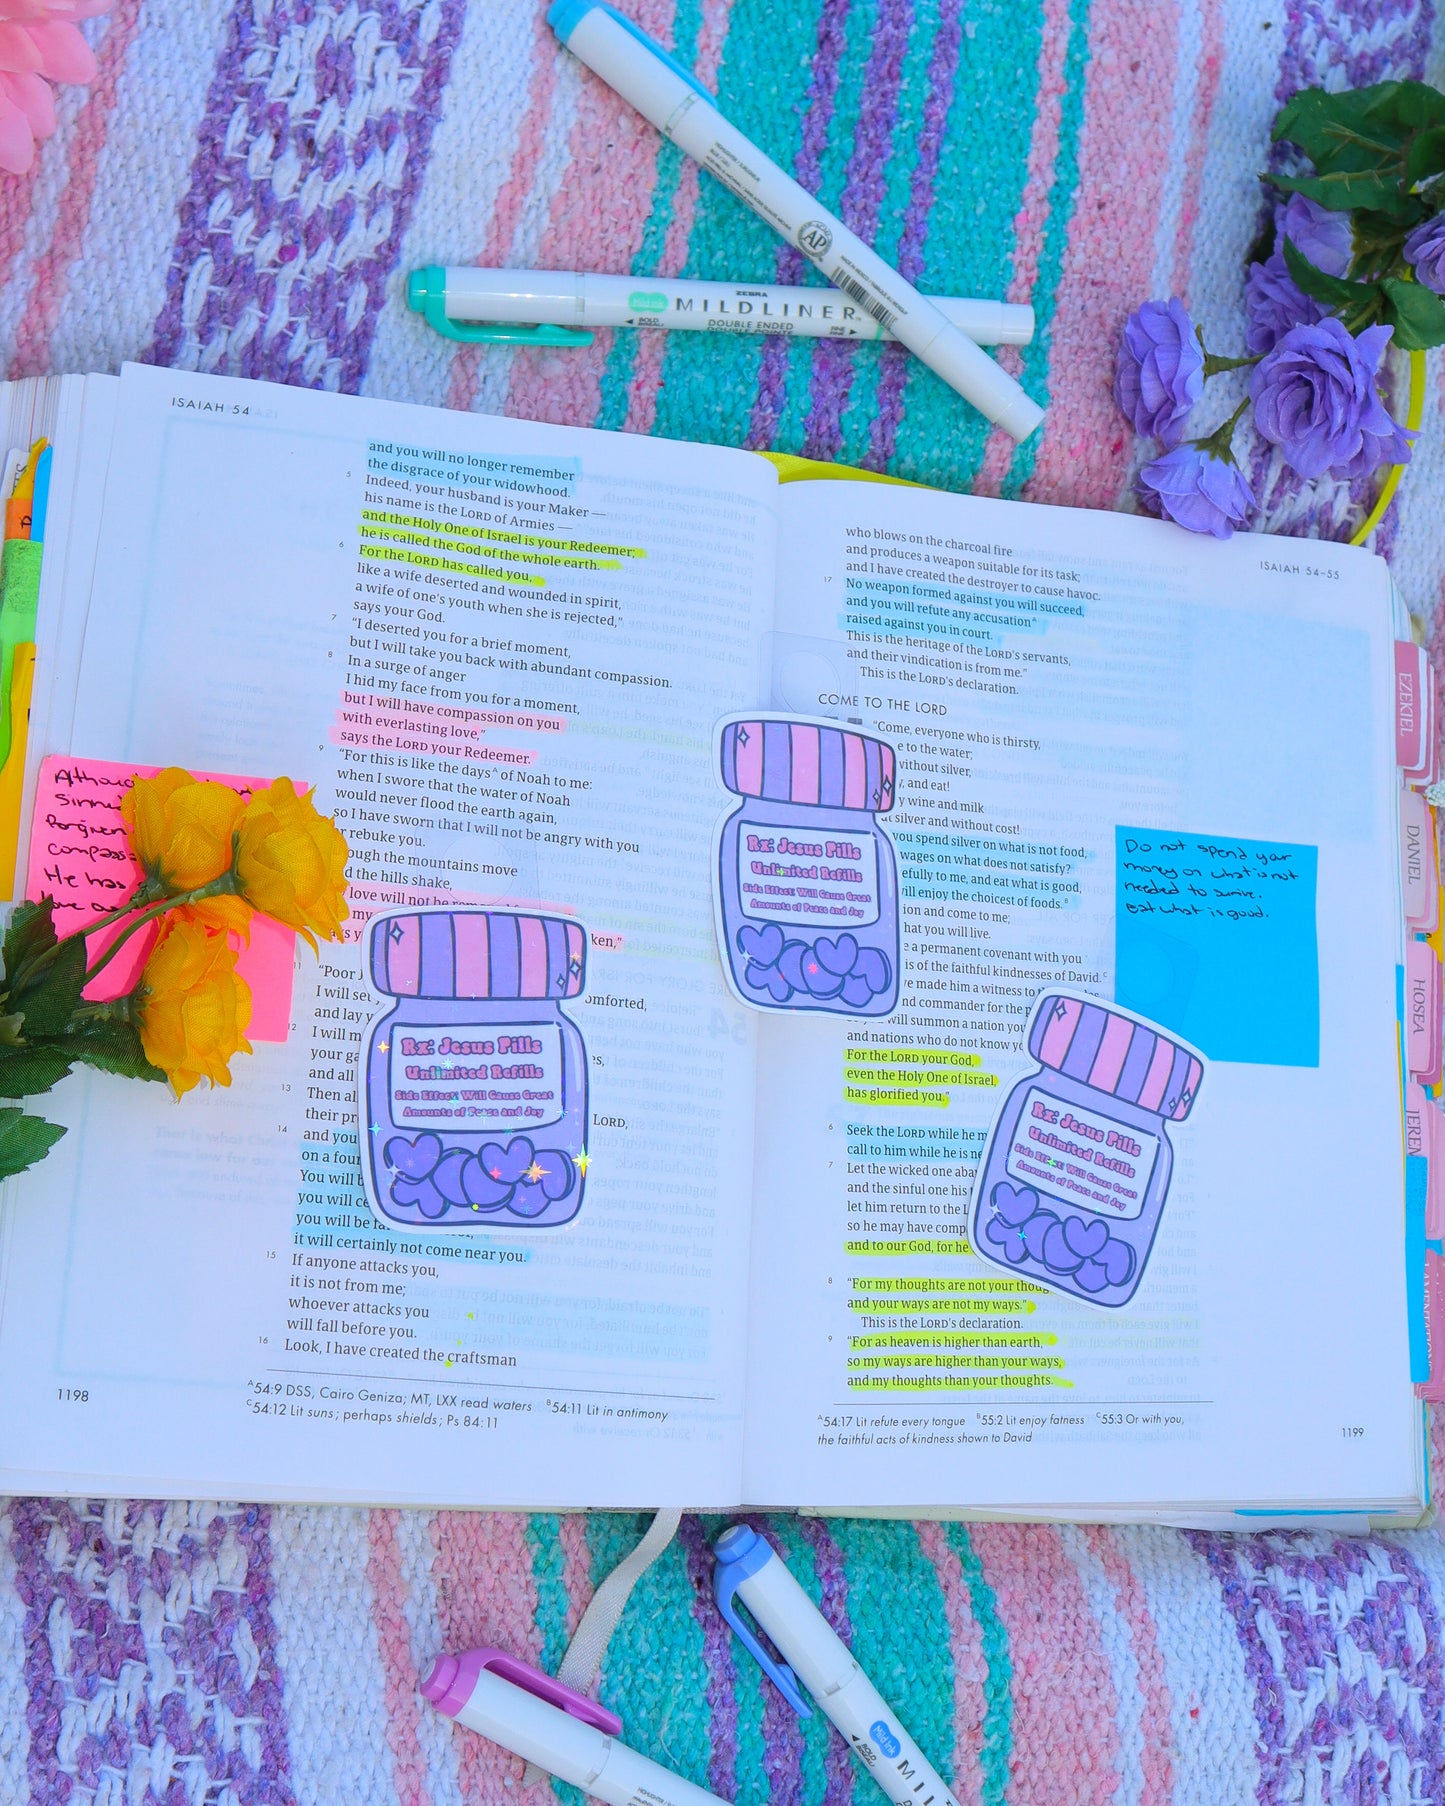 ZEBRA
Mid ink MILDLINER
BOLD
DOUBLE ENDED
FINE
AP
ISAIAH 54
and you will no longer remember
the disgrace of your widowhood.
5 Indeed, your husband is your Maker —
his name is the LORD of Armies —
and the Holy One of Israel is your Redeemer;
he is called the God of the whole earth.
6 For the LORD has called you,
like a wife deserted and wounded in spirit,
a wife of one's youth when she is rejected,"
says your God.
7 "I deserted you for a brief moment,
but I will take you back with abundant compassion.
8 In a surge of anger
I hid my face from you for a moment,
but I will have compassion on you
with everlasting love,"
says the LORD your Redeemer.
9 "For this is like the days ᴬ of Noah to me:
when I swore that the water of Noah
would never flood the earth again,
so I have sworn that I will not be angry with you
rebuke you.
the mountains move
the hills shake,
love will not be
my
"Poor
I will
and lay
I will
your
and all
13 Then all
their
LORD,
14 and you
on a
You will
you will
you will be
it will certainly not come near you.
15 If anyone attacks you,
it is not from me;
whoever attacks you
will fall before you.
16 Look, I have created the craftsman
ᴬ54:9 DSS, Cairo Geniza; MT, LXX read waters ᴮ54:11 Lit in antimony
ᶜ54:12 Lit suns; perhaps shields; Ps 84:11
1198
sinne
compass
He has
Rx: Jesus Pills
Unlimited Refills
Side Effect: Will Cause Great
Amounts of Peace and Joy
ISAIAH 54–55
who blows on the charcoal fire
and produces a weapon suitable for its task;
and I have created the destroyer to cause havoc.
17 No weapon formed against you will succeed,
and you will refute any accusation ᴬ
raised against you in court.
This is the heritage of the LORD's servants,
and their vindication is from me."
This is the LORD's declaration.
COME TO THE LORD
"Come, everyone who is thirsty,
to the water;
without silver,
and eat!
wine and milk
silver and without cost!
you spend silver on what is not food,
wages on what does not satisfy?
to me, and eat what is good,
enjoy the choicest of foods.ᴮ
and come to me;
that you will live.
a permanent covenant with you
of the faithful kindnesses of David.ᶜ
made him a witness to
commander for the
will summon a nation you
and nations who do not know
For the LORD your God,
even the Holy One of Israel,
has glorified you."
6 Seek the LORD while he
call to him while he is
7 Let the wicked one
and the sinful one his
let him return to the
so he may have
and to our God, for he
8 "For my thoughts are not your
and your ways are not my ways."
This is the LORD's declaration.
9 "For as heaven is higher than earth,
so my ways are higher than your ways,
and my thoughts than your thoughts.
ᴬ54:17 Lit refute every tongue ᴮ55:2 Lit enjoy fatness ᶜ55:3 Or with you,
the faithful acts of kindness shown to David
1199
Rx: Jesus Pills
Unlimited Refills
Side Effect: Will Cause Great
Amounts of Peace and Joy
Rx: Jesus Pills
Unlimited Refills
Side Effect: Will Cause Great
Amounts of Peace and Joy
Do not spend your
money on what is not
needed to survive.
eat what is good.
EZEKIEL
DANIEL
HOSEA
JEREM
LAMENTATIONS
Mid ink
BOLD